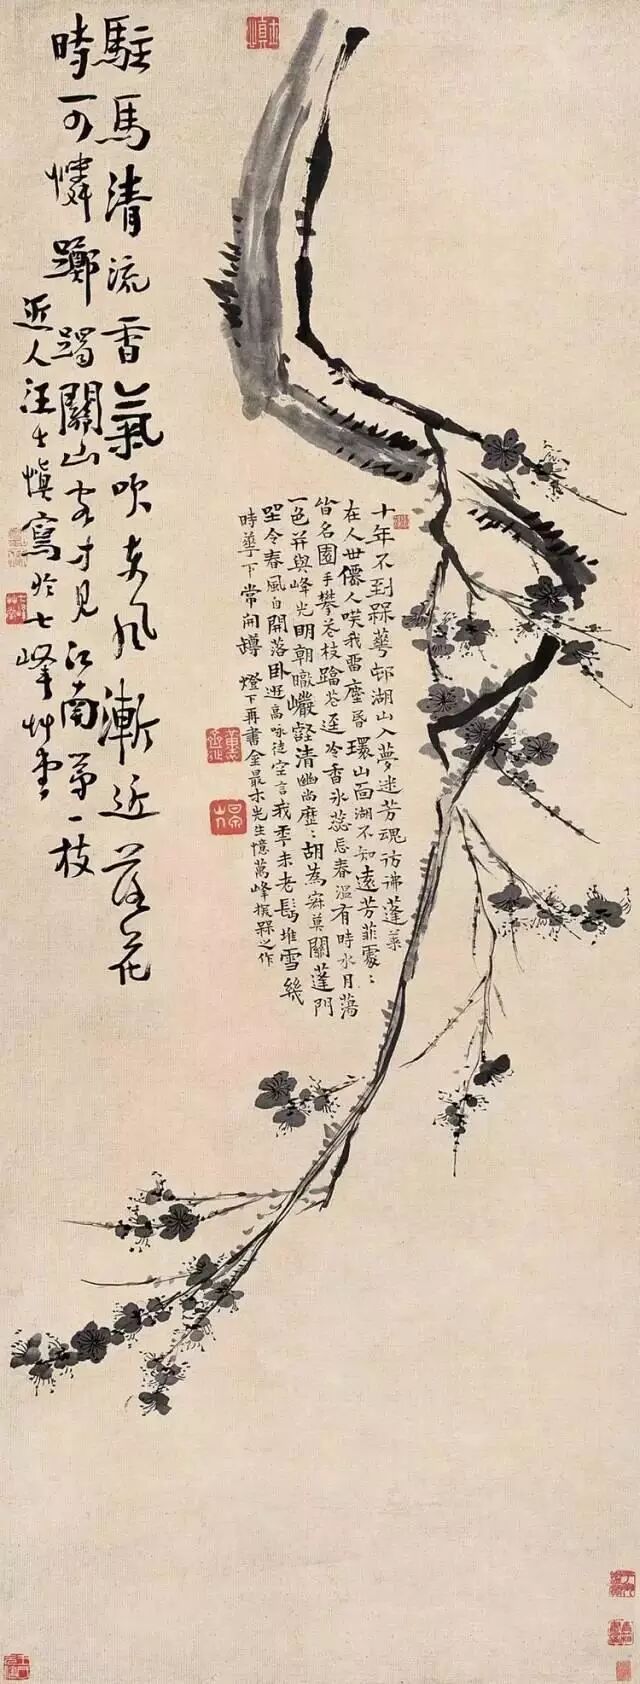 十年不到槑華邨湖山入夢迷芳魂彷彿蓬萊
在人世僊人嘆我霤塵昏環山面湖不知遠芳菲處：
皆名園手攀花枝蹋花迳冷香氷蕊忘春溫有時水月蕩
一色并與峰光明朝暾巖壑清幽尚歷：胡為寂莫關蓬門
坐令春風自開落卧遊高咏徒空言我季未老鬓堆雪幾
時華下常開罇 燈下再書金最木先生憶萬峰探槑之作
駐馬清流香氣吹東風漸近落花
時可憐躑躅關山客才見江南第一枝
近人汪士慎寫於七峰艸堂